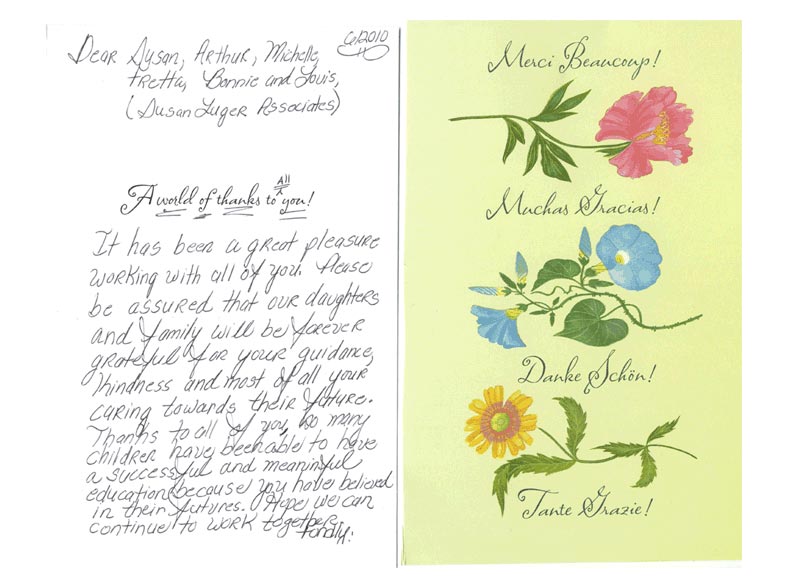 6/2010
Dear Susan, Arthur, Michelle,
Fretta, Bonnie and Louis,
(Susan Luger Associates)
A world of thanks to All you!
It has been a great pleasure
working with all of you. Please
be assured that our daughters
and family will be forever
grateful for your guidance,
kindness and most of all your
caring towards their future.
Thanks to all of you, so many
children have been able to have
a successful and meaningful
education because you have believed
in their futures. Hope we can
continue to work together.
Fondly:
Merci Beaucoup!
Muchas Gracias!
Danke Schön!
Tante Grazie!